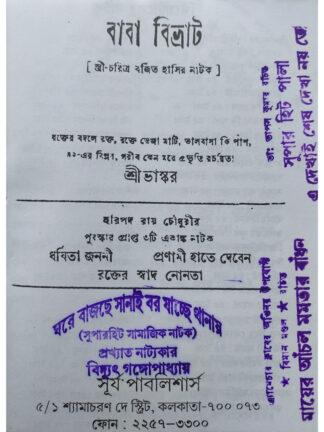 বাবা বিভ্রাট
[ স্ত্রী-চরিত্র বর্জিত হাসির নাটক ]
রক্তের বদলে রক্ত, রক্তে ভেজা মাটি, ভালবাসা কি পাপ,
৪২-এর বিপ্লব, গরীব কেন মরে প্রভৃতি রচয়িতা
শ্রীভাস্কর
হারপদ রায় চৌধুরীর
পুরস্কার প্রাপ্ত ৩টি একাঙ্ক নাটক
ধর্ষিতা জননী প্রণামী হাতে দেবেন
রক্তের স্বাদ নোনতা
ঘরে বাজছে সানাই বর যাচ্ছে থানায়
(সুপারহিট সামাজিক নাটক)
প্রখ্যাত নাট্যকার
বিদ্যুৎ গঙ্গোপাধ্যায়
সূর্য পাবলিশার্স
৫/১ শ্যামাচরণ দে স্ট্রিট, কলকাতা-৭০০ ০৭৩
ফোন : ২২৫৭-৩৩০০
ডাঃ তাপস কুমার রচিত
সুপার হিট পালা
এ দেখাই শেষ দেখা নয় তো
অ্যামেচার ক্লাবের অভিনয় উপযোগী
★ বিমান মণ্ডল ★ রচিত
মায়ের আঁচল মমতার বাঁধন